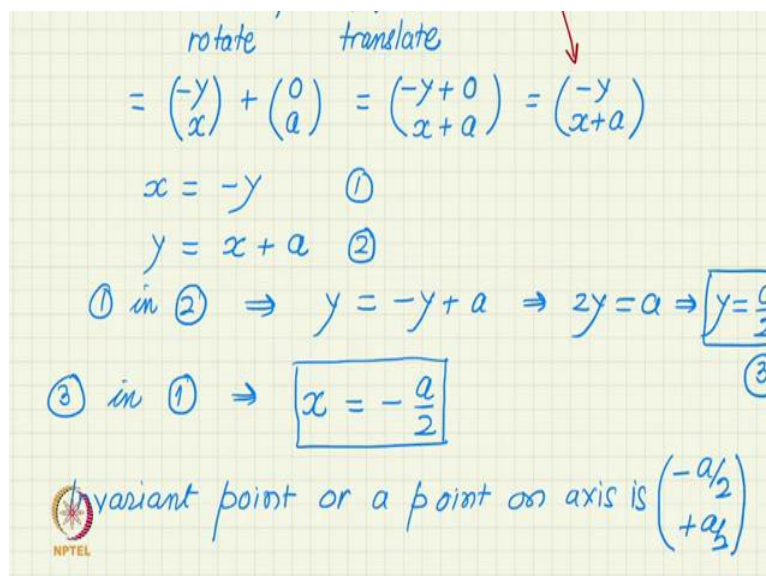 rotate translate
= (-y x) + (0 a) = (-y+0 x+a) = (-y x+a)
x = -y ①
y = x + a ②
① in ② ⇒ y = -y + a ⇒ 2y = a ⇒ y = a/2
③
③ in ① ⇒ x = - a/2
Invariant point or a point on axis is (-a/2 +a/2)
NPTEL